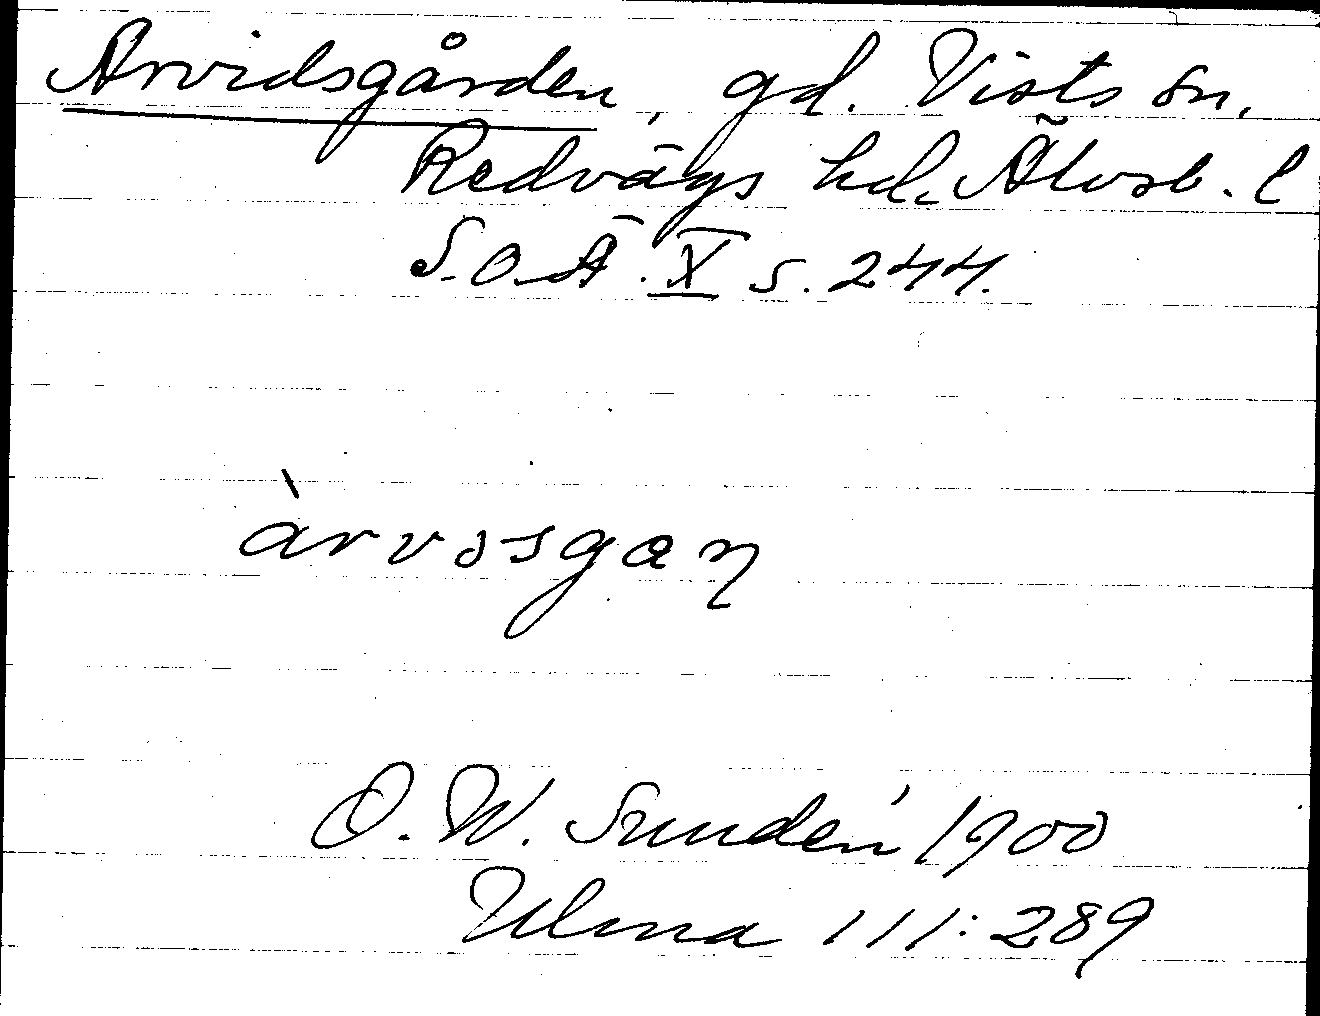 Arvidsgården, gd. Vists sn.
Redvägs hd. Älvsb. l
S.O.Ä. X s. 244.
àrvəsgaŋ
O. W. Sundén 1900
Ulma 111:289